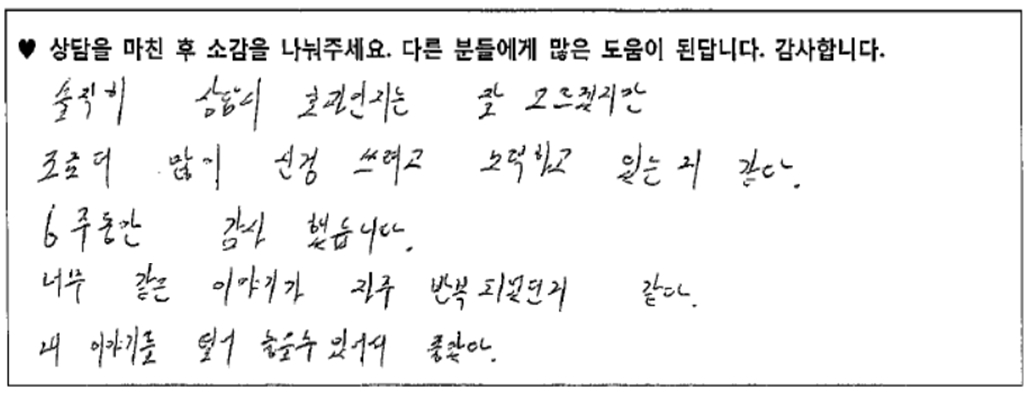 ♥ 상담을 마친 후 소감을 나눠주세요. 다른 분들에게 많은 도움이 된답니다. 감사합니다.
솔직히 상담이 효과인지는 잘 모르겠지만
조금더 많이 신경 쓰려고 노력하고 있는거 같다.
6주동안 감사 했습니다.
너무 같은 이야기가 자주 반복 되었던거 같다.
내 이야기를 털어 놓을수 있어서 좋았다.